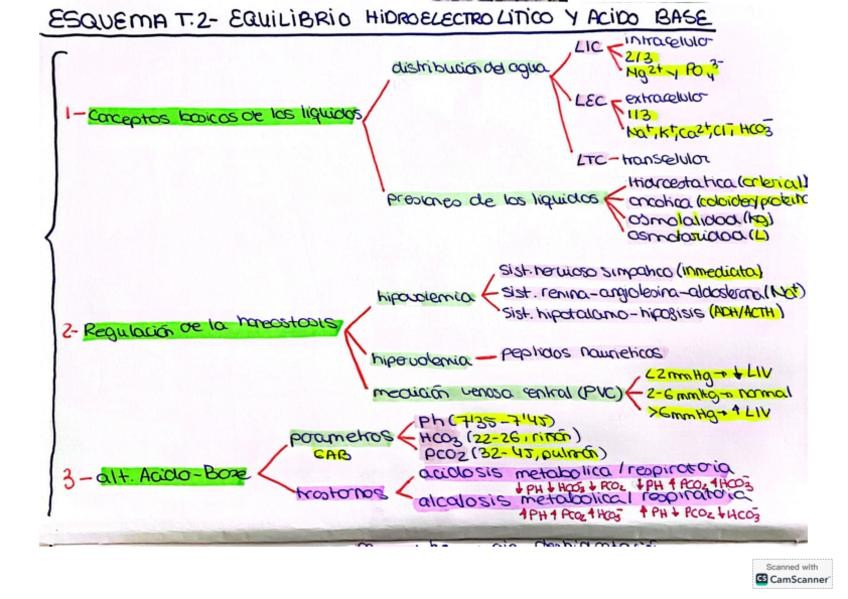 ESQUEMA T.2- EQUILIBRIO HIDROELECTROLITICO Y ACIDO BASE
1- Conceptos basicos de los liquidos
distribución del agua
LIC
intracelular
2/3
Mg2+ y PO4 3-
LEC
extracelular
1/3
Na+, K+, Ca2+, Cl-, HCO3-
LTC - transcelular
presiones de los liquidos
Hidrostatica (arterial)
oncotica (coloide y protein
osmolalidad (kg)
osmolaridad (L)
2- Regulación de la homeostasis
hipovolemia
sist. nervioso simpatico (inmediata)
sist. renina-angiotesina-aldosterona (Na+)
sist. hipotalamo-hipofisis (ADH/ACTH)
hipervolemia - peptidos natriureticos
medición venosa central (PVC)
<2 mmHg → ↓ LIV
2-6 mmHg → normal
>6 mmHg → ↑ LIV
3- alt. Acido-Base
parametros
GAB
Ph (7'35-7'45)
HCO3 (22-26, riñón)
PCO2 (32-45, pulmón)
trastornos
acidosis metabolica / respiratoria
↓PH ↓HCO3- ↓PCO2 ↓PH ↑PCO2 ↑HCO3-
alcalosis metabolica / respiratoria
↑PH ↑PCO2 ↑HCO3- ↑PH ↓PCO2 ↓HCO3-
Scanned with
CS CamScanner